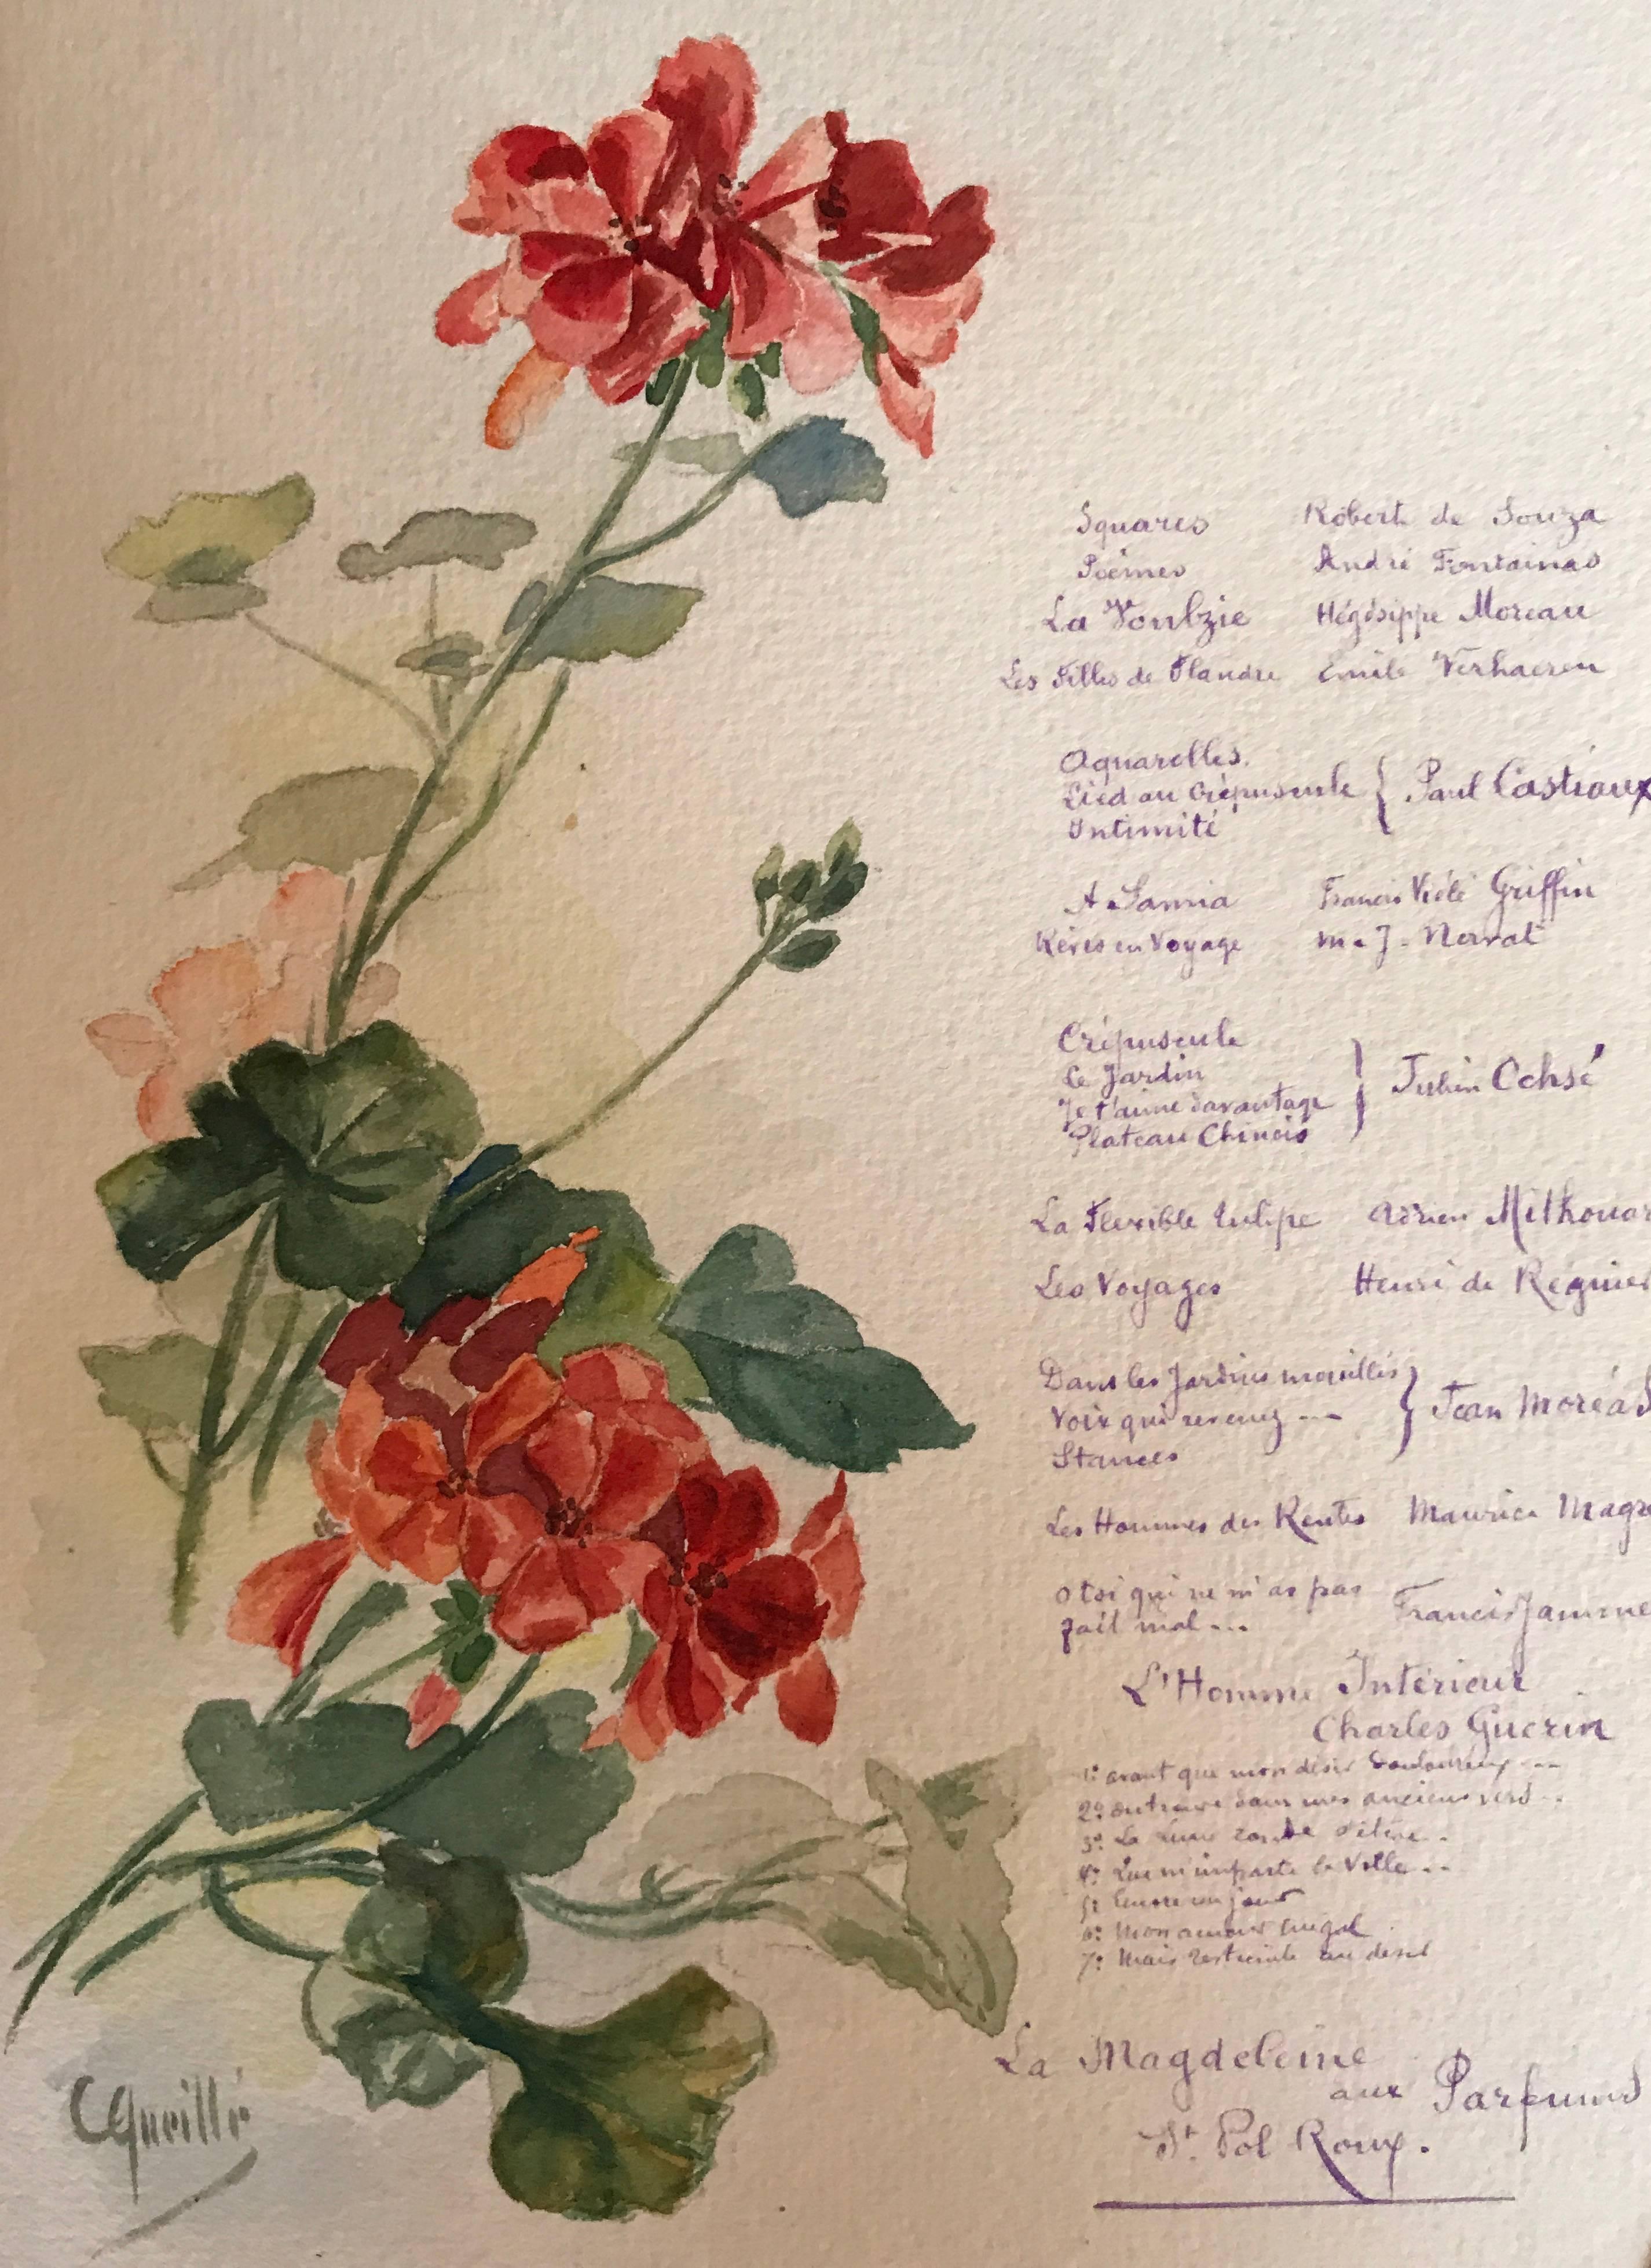 Squares Robert de Souza
Poèmes André Fontainas
La Voulzie Hégésippe Moreau
Les Filles de Flandre Emile Verhaeren
Aquarelles.
Lied au Crépuscule { Paul Castiaux
Intimité
A Samia Francis Viélé Griffin
Rêves en Voyage M. J. Nervat
Crépuscule
Le Jardin
Je t'aime davantage } Julien Ochsé
Plateau Chinois
La Flexible tulipe Adrien Mithouar
Les Voyages Henri de Régnier
Dans les Jardins mouillés
Voix qui revenez --- } Jean Moréas
Stances
Les Hommes des Routes Maurice Magr
O toi qui ne m'as pas
fait mal... Francis Jamme
L'Homme Intérieur
Charles Guérin
1º avant que mon désir douloureux ---
2º dans mes anciens vers..
3º La Lune ronde s'élève..
4º m'importe la Ville..
5º Encore un jour
6º Mon amour
7º Mais
La Magdeleine
aux Parfums
St. Pol Roux.
C Queillé